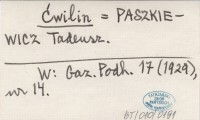 Ćwilin = PASZKIE-
WICZ Tadeusz.
W: Gaz. Podh. 17 (1929),
nr 14.
BT/010/0191